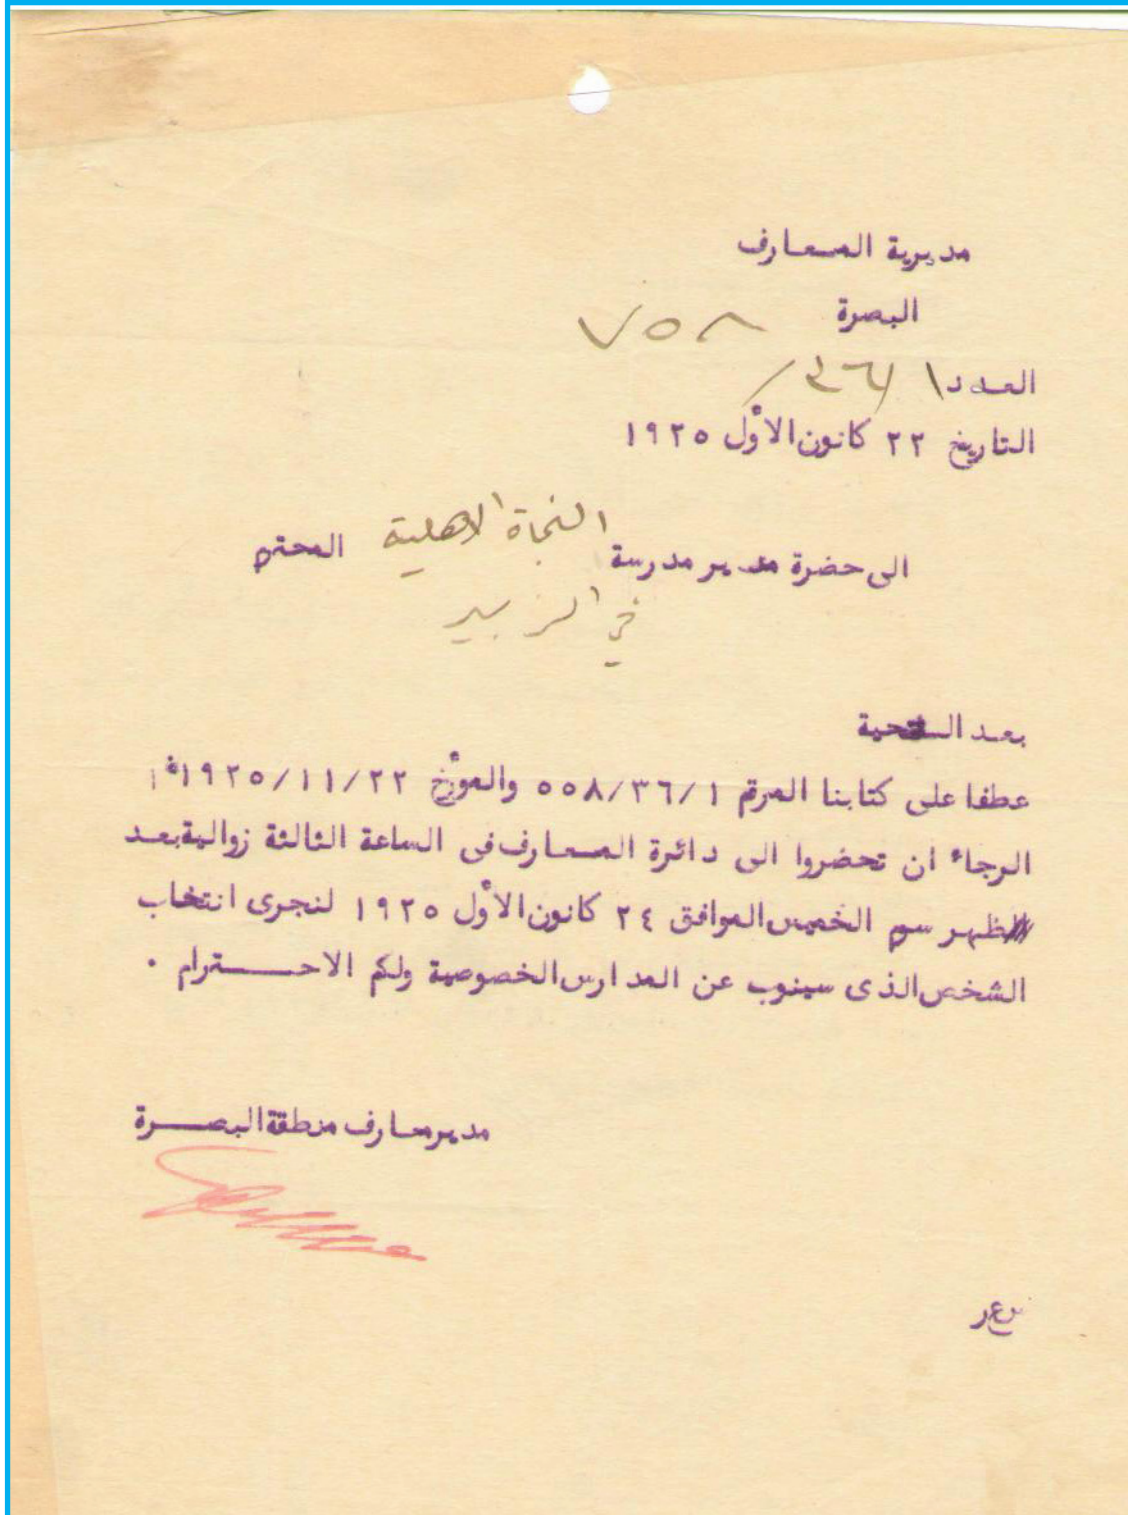 مديرية المعارف
البصرة ٧٥٨
العدد ١/٣٦/
التاريخ ٢٢ كانون الأول ١٩٢٥
الى حضرة مدير مدرسة النجاة الاهلية المحترم
في الزبير
بعد التحية
عطفا على كتابنا المرقم ٥٥٨/٣٦/١ والمؤرخ ١٩٢٥/١١/٢٢
الرجاء ان تحضروا الى دائرة المعارف فى الساعة الثالثة زوالية بعد
الظهر يوم الخميس الموافق ٢٤ كانون الأول ١٩٢٥ لنجرى انتخاب
الشخص الذى سينوب عن المدارس الخصوصية ولكم الاحـــترام ٠
مدير معارف منطقة البصـــرة